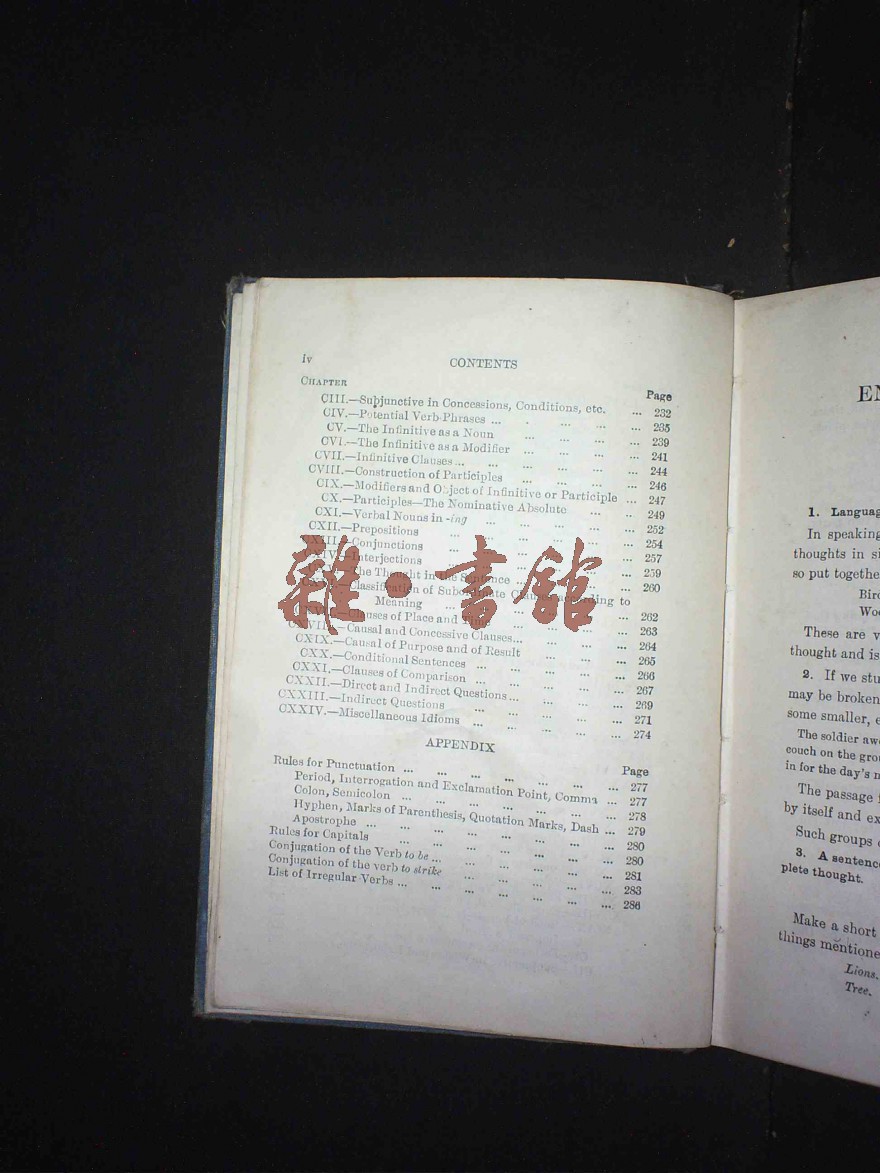 iv
CONTENTS
CHAPTER Page
CIII.—Subjunctive in Concessions, Conditions, etc. ... 232
CIV.—Potential Verb-Phrases ... . ... ... ... 235
CV.—The Infinitive as a Noun ... ... ... ... 239
CVI.—The Infinitive as a Modifier ... ... ... ... 241
CVII.—Infinitive Clauses ... ... ... ... ... 244
CVIII.—Construction of Participles ... ... ... ... 246
CIX.—Modifiers and Object of Infinitive or Participle ... 247
CX.—Participles—The Nominative Absolute ... ... 249
CXI.—Verbal Nouns in -ing ... ... ... ... ... 252
CXII.—Prepositions ... ... ... ... ... 254
Conjunctions ... ... ... ... ... 257
Interjections ... ... ... ... ... 259
The Thought in the Sentence ... ... ... ... 260
Classification of Subordinate Clauses according to
Meaning ... ... ... ... ... 262
Clauses of Place and Time ... ... ... 263
CXVIII.—Causal and Concessive Clauses... ... ... ... 264
CXIX.—Causal of Purpose and of Result ... ... ... 265
CXX.—Conditional Sentences ... ... ... ... ... 266
CXXI.—Clauses of Comparison ... ... ... ... ... 267
CXXII.—Direct and Indirect Questions ... ... ... ... 269
CXXIII.—Indirect Questions ... ... ... ... ... 271
CXXIV.—Miscellaneous Idioms ... ... ... ... ... 274
雜·書館
APPENDIX
Page
Rules for Punctuation ... ... ... ... ... ... ... 277
Period, Interrogation and Exclamation Point, Comma ... 277
Colon, Semicolon ... ... ... ... ... ... ... 278
Hyphen, Marks of Parenthesis, Quotation Marks, Dash ... 279
Apostrophe ... ... ... ... ... ... ... 280
Rules for Capitals ... ... ... ... ... ... 280
Conjugation of the Verb to be ... ... ... ... ... 281
Conjugation of the verb to strike ... ... ... ... 283
List of Irregular Verbs ... ... ... ... ... 286
1. Languag
In speaking
thoughts in si
so put togethe
Bird
Woo
These are v
thought and is
2. If we stu
may be broken
some smaller, e
The soldier awo
couch on the grou
in for the day's m
The passage
by itself and ex
Such groups
3. A sentence
plete thought.
Make a short
things mentione
Lions.
Tree.